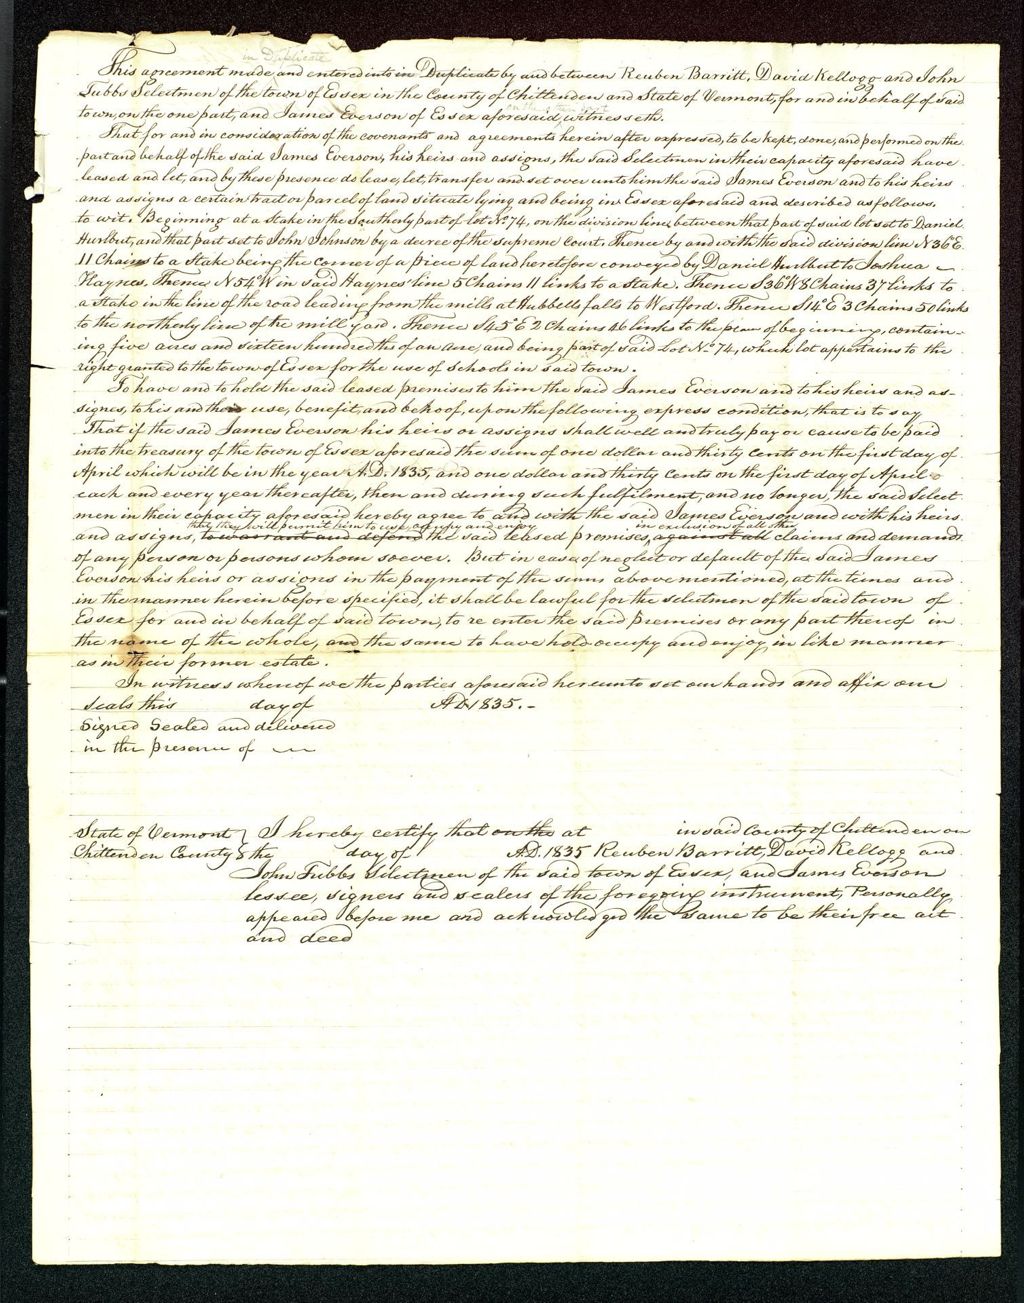 in Duplicate
This agreement made and entered into in Duplicate by and between Reuben Barritt, David Kellogg and John
Tubbs Selectmen of the town of Essex in the County of Chittenden and State of Vermont, for and in behalf of said
on the other part
town, on the one part, and James Everson of Essex aforesaid, witnesseth.
That for and in consideration of the covenants and agreements herein after expressed, to be kept, done, and performed on the
part and behalf of the said James Everson, his heirs and assigns, the said Selectmen in their capacity aforesaid have
leased and let, and by these presence do lease, let, transfer and set over unto him the said James Everson and to his heirs
and assigns a certain tract or parcel of land situate lying and being in Essex aforesaid and described as follows,
to wit. Beginning at a stake in the Southerly part of lot No. 74, on the division line, between that part of said lot set to Daniel
Hurlbut, and that part set to John Johnson by a decree of the supreme Court, Thence by and with the said division line N 36° E.
11 Chains to a Stake being the corner of a piece of land heretofore conveyed by Daniel Hurlbut to Joshua
Haynes. Thence N 54° W in said Haynes' line 5 Chains 11 links to a Stake. Thence S 36° W 8 Chains 37 links to
a stake in the line of the road leading from the mills at Hubbells falls to Westford. Thence S 14° E 3 Chains 50 links
to the northerly line of the mill yard. Thence S 45° E 2 Chains 46 links to the place of beginning, contain-
ing five acres and sixteen hundredths of an acre, and being part of said Lot No. 74, which lot appertains to the
right granted to the town of Essex for the use of schools in said town.
To have and to hold the said leased premises to him the said James Everson and to his heirs and as-
signes, to his and their use, benefit and behoof, upon the following express condition, that is to say
That if the said James Everson his heirs or assigns shall well and truly pay or cause to be paid
into the treasury of the town of Essex aforesaid the sum of one dollar and thirty cents on the first day of
April which will be in the year A.D. 1835, and one dollar and thirty cents on the first day of April
each and every year thereafter, then and during such fulfilment, and no longer, the said Select-
men in their capacity aforesaid hereby agree to and with the said James Everson and with his heirs
that they will permit him to use, occupy and enjoy in exclusion of all the
and assigns, to warrant and defend the said leased premises, against all claims and demands
of any person or persons whom soever. But in case of neglect or default of the said James
Everson his heirs or assigns in the payment of the sums above mentioned, at the times and
in the manner herein before specified, it shall be lawful for the selectmen of the said town of
Essex for and in behalf of said town, to re enter the said premises or any part thereof in
the name of the whole, and the same to have hold occupy and enjoy in like manner
as in their former estate.
In witness whereof we the parties aforesaid hereunto set our hands and affix our
seals this day of A.D. 1835.
Signed Sealed and delivered
in the presence of
State of Vermont } I hereby certify that on the at in said County of Chittenden on
Chittenden County } the day of A.D. 1835 Reuben Barritt, David Kellogg and
John Tubbs Selectmen of the said town of Essex, and James Everson
lessee, signers and sealers of the foregoing instrument, Personally
appeared before me and acknowledged the same to be their free act
and deed